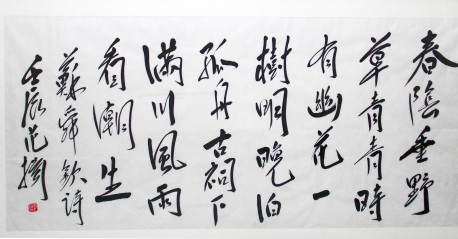 春陰垂野
草青青時
有幽花一
樹明晚泊
孤舟古祠下
滿川風雨
看潮生
蘇舜欽詩
壬辰范揚